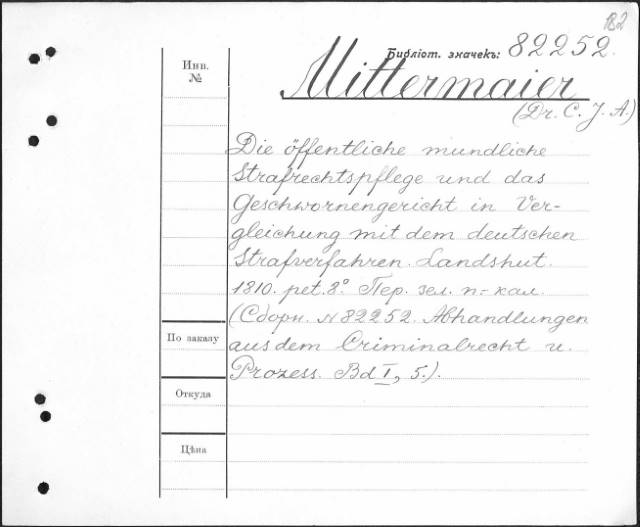 182
Библіот. значекъ: 82252.
Инв.
№
Mittermaier
(Dr. C. J. A.)
Die öffentliche mundliche
Strafrechtspflege und das
Geschwornengericht in Ver-
gleichung mit dem deutschen
Strafverfahren. Landshut.
1810. pet. 8° Пер. зел. п.-кал.
(Сборн. № 82252. Abhandlungen
По заказу
aus dem Criminalrecht u.
Prozess. Bd I, 5.).
Откуда
Цѣна